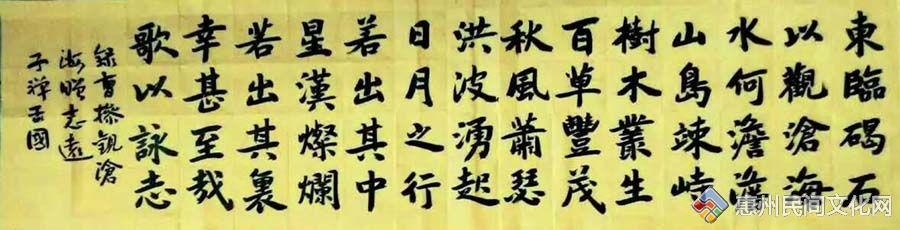 東臨碣石
以觀滄海
水何澹澹
山島竦峙
樹木叢生
百草豐茂
秋風蕭瑟
洪波湧起
日月之行
若出其中
星漢燦爛
若出其裏
幸甚至哉
歌以詠志
録曹操觀滄
海贈志遠
惠州民间文化网